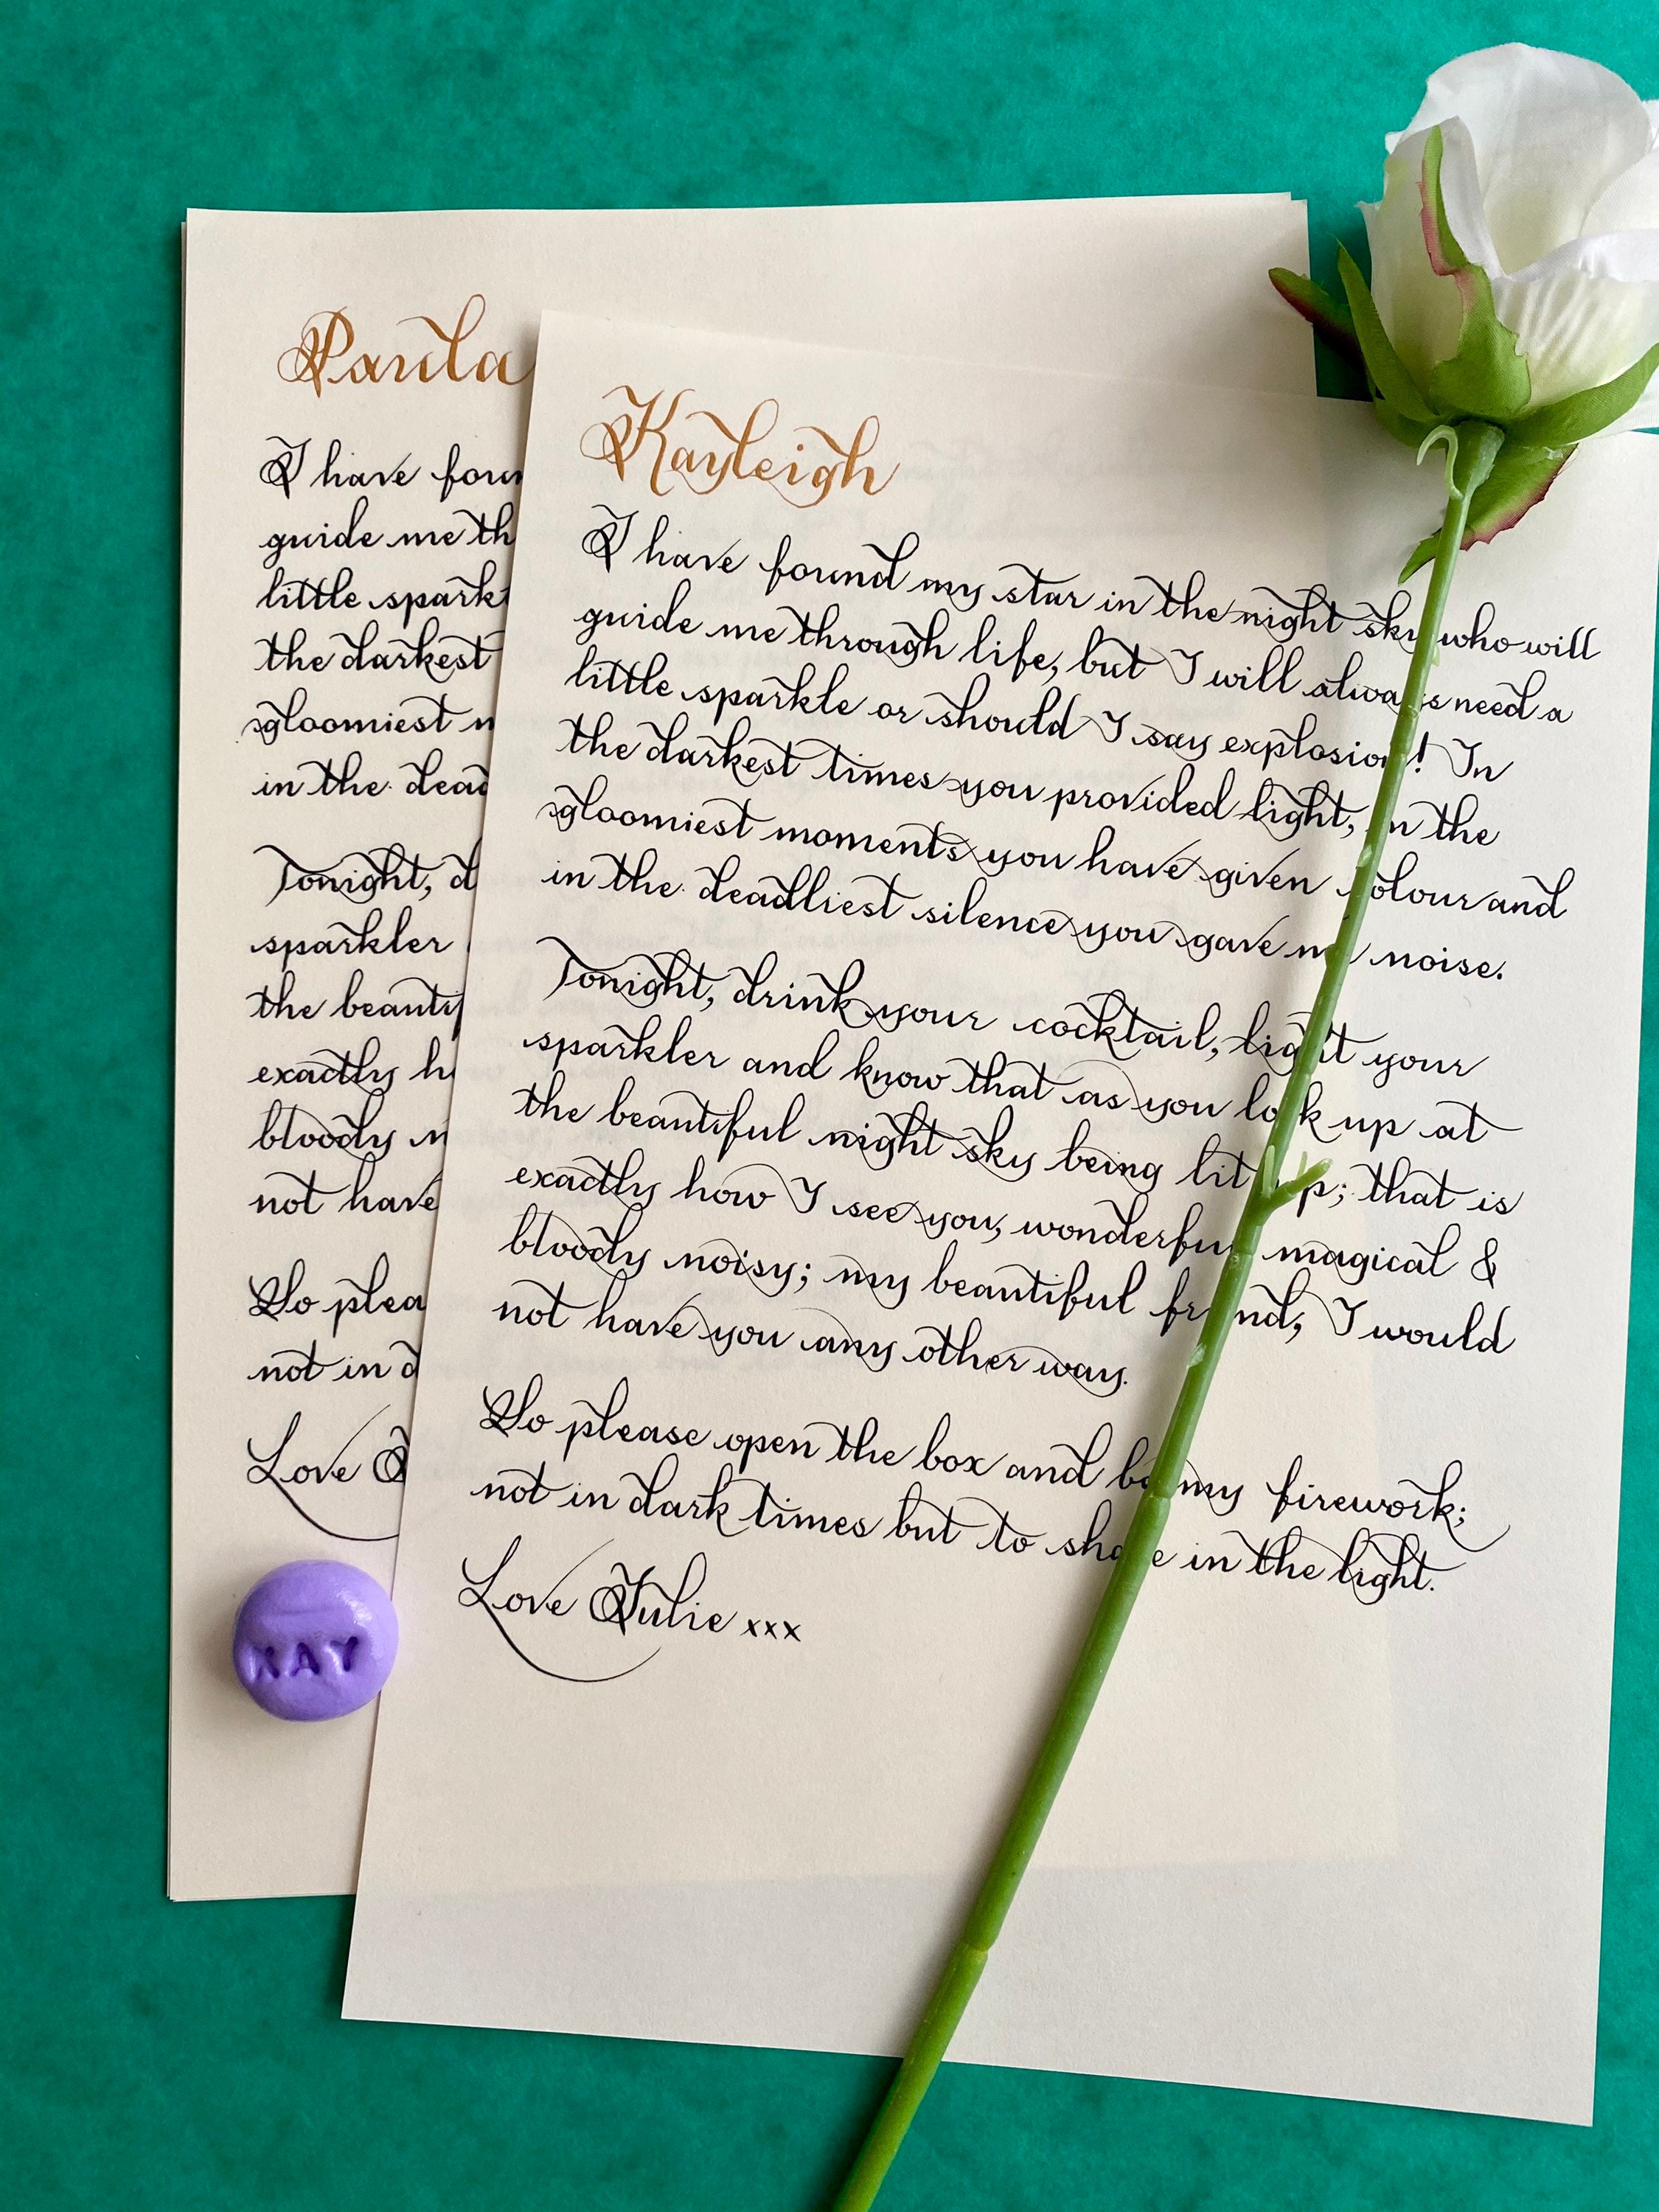 Paula
I have foun
guide me th
little spark
the darkest
gloomiest m
in the dead
Tonight, d
sparkler
the beautif
exactly h
bloody n
not have
So plea
not in d
Love J
KAY
Kayleigh
I have found my star in the night sky who will
guide me through life, but I will always need a
little sparkle or should I say explosion! In
the darkest times you provided light, in the
gloomiest moments you have given colour and
in the deadliest silence you gave me noise.
Tonight, drink your cocktail, light your
sparkler and know that as you look up at
the beautiful night sky being lit up; that is
exactly how I see you, wonderful magical &
bloody noisy; my beautiful friend, I would
not have you any other way.
So please open the box and be my firework;
not in dark times but to share in the light.
Love Julie xxx